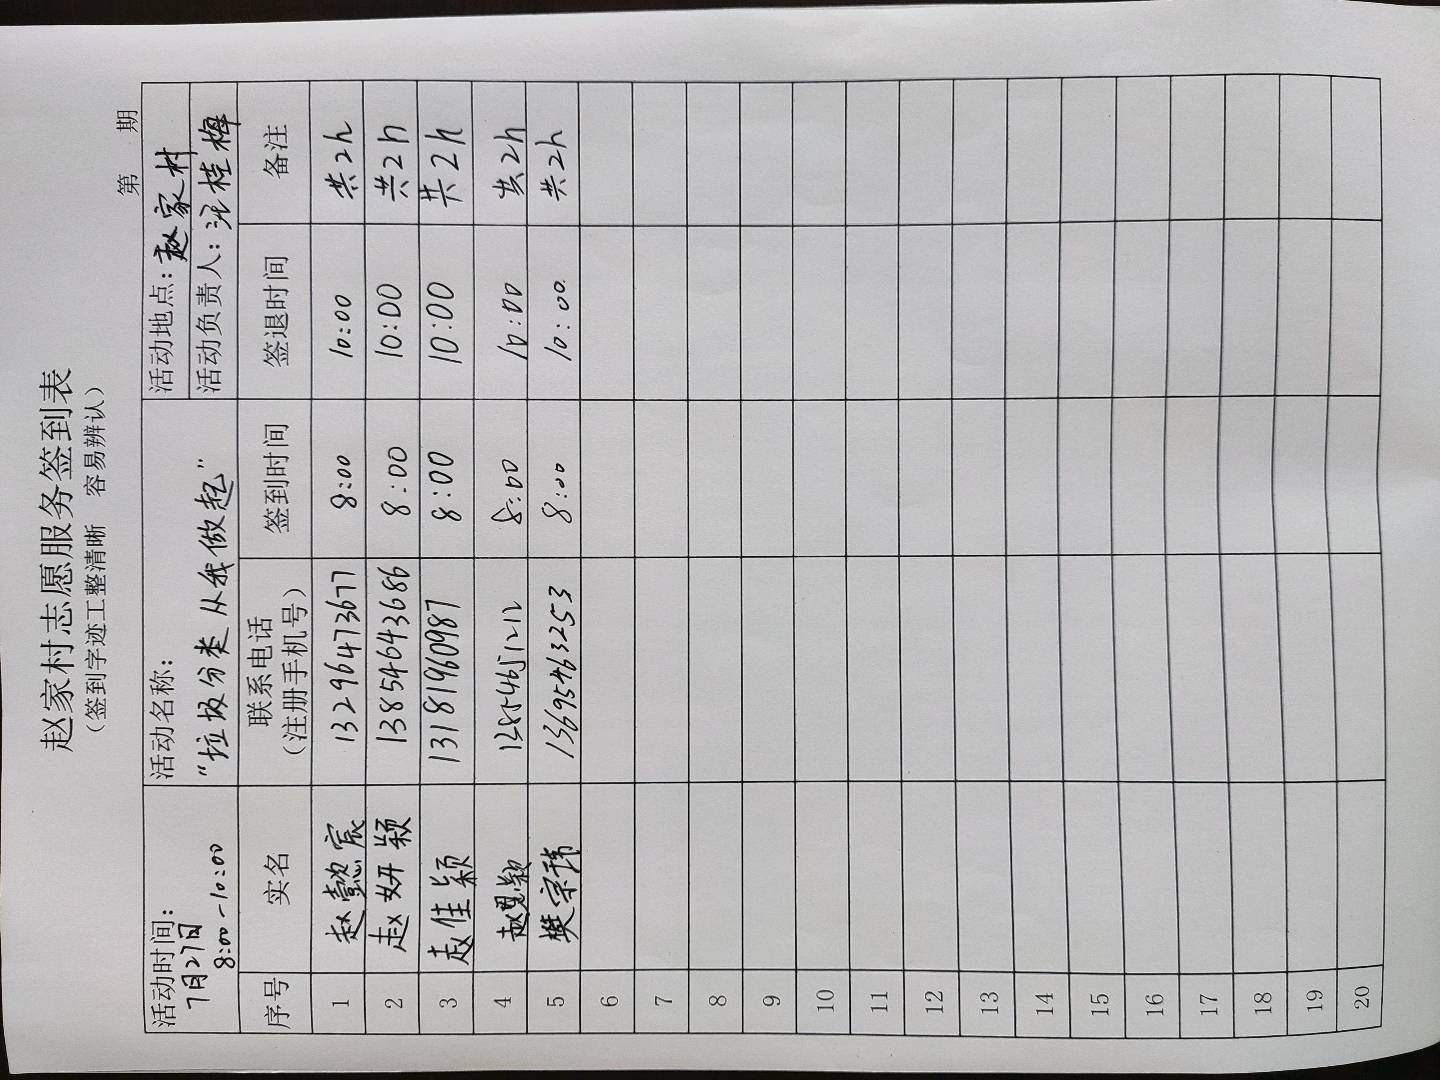 赵家村志愿服务签到表
（签到字迹工整清晰 容易辨认）
第 期
活动时间：
7月27日
8:00-10:00
活动名称：
“垃圾分类 从我做起”
活动地点：赵家村
活动负责人：汪桂梅
序号 实名 联系电话（注册手机号） 签到时间 签退时间 备注
1 赵懿宸 13296473677 8:00 10:00 共2h
2 赵妍颖 13854643686 8:00 10:00 共2h
3 赵佳颖 13181960987 8:00 10:00 共2h
4 赵思颖 13854651212 8:00 10:00 共2h
5 樊宗玮 13695463253 8:00 10:00 共2h
6
7
8
9
10
11
12
13
14
15
16
17
18
19
20